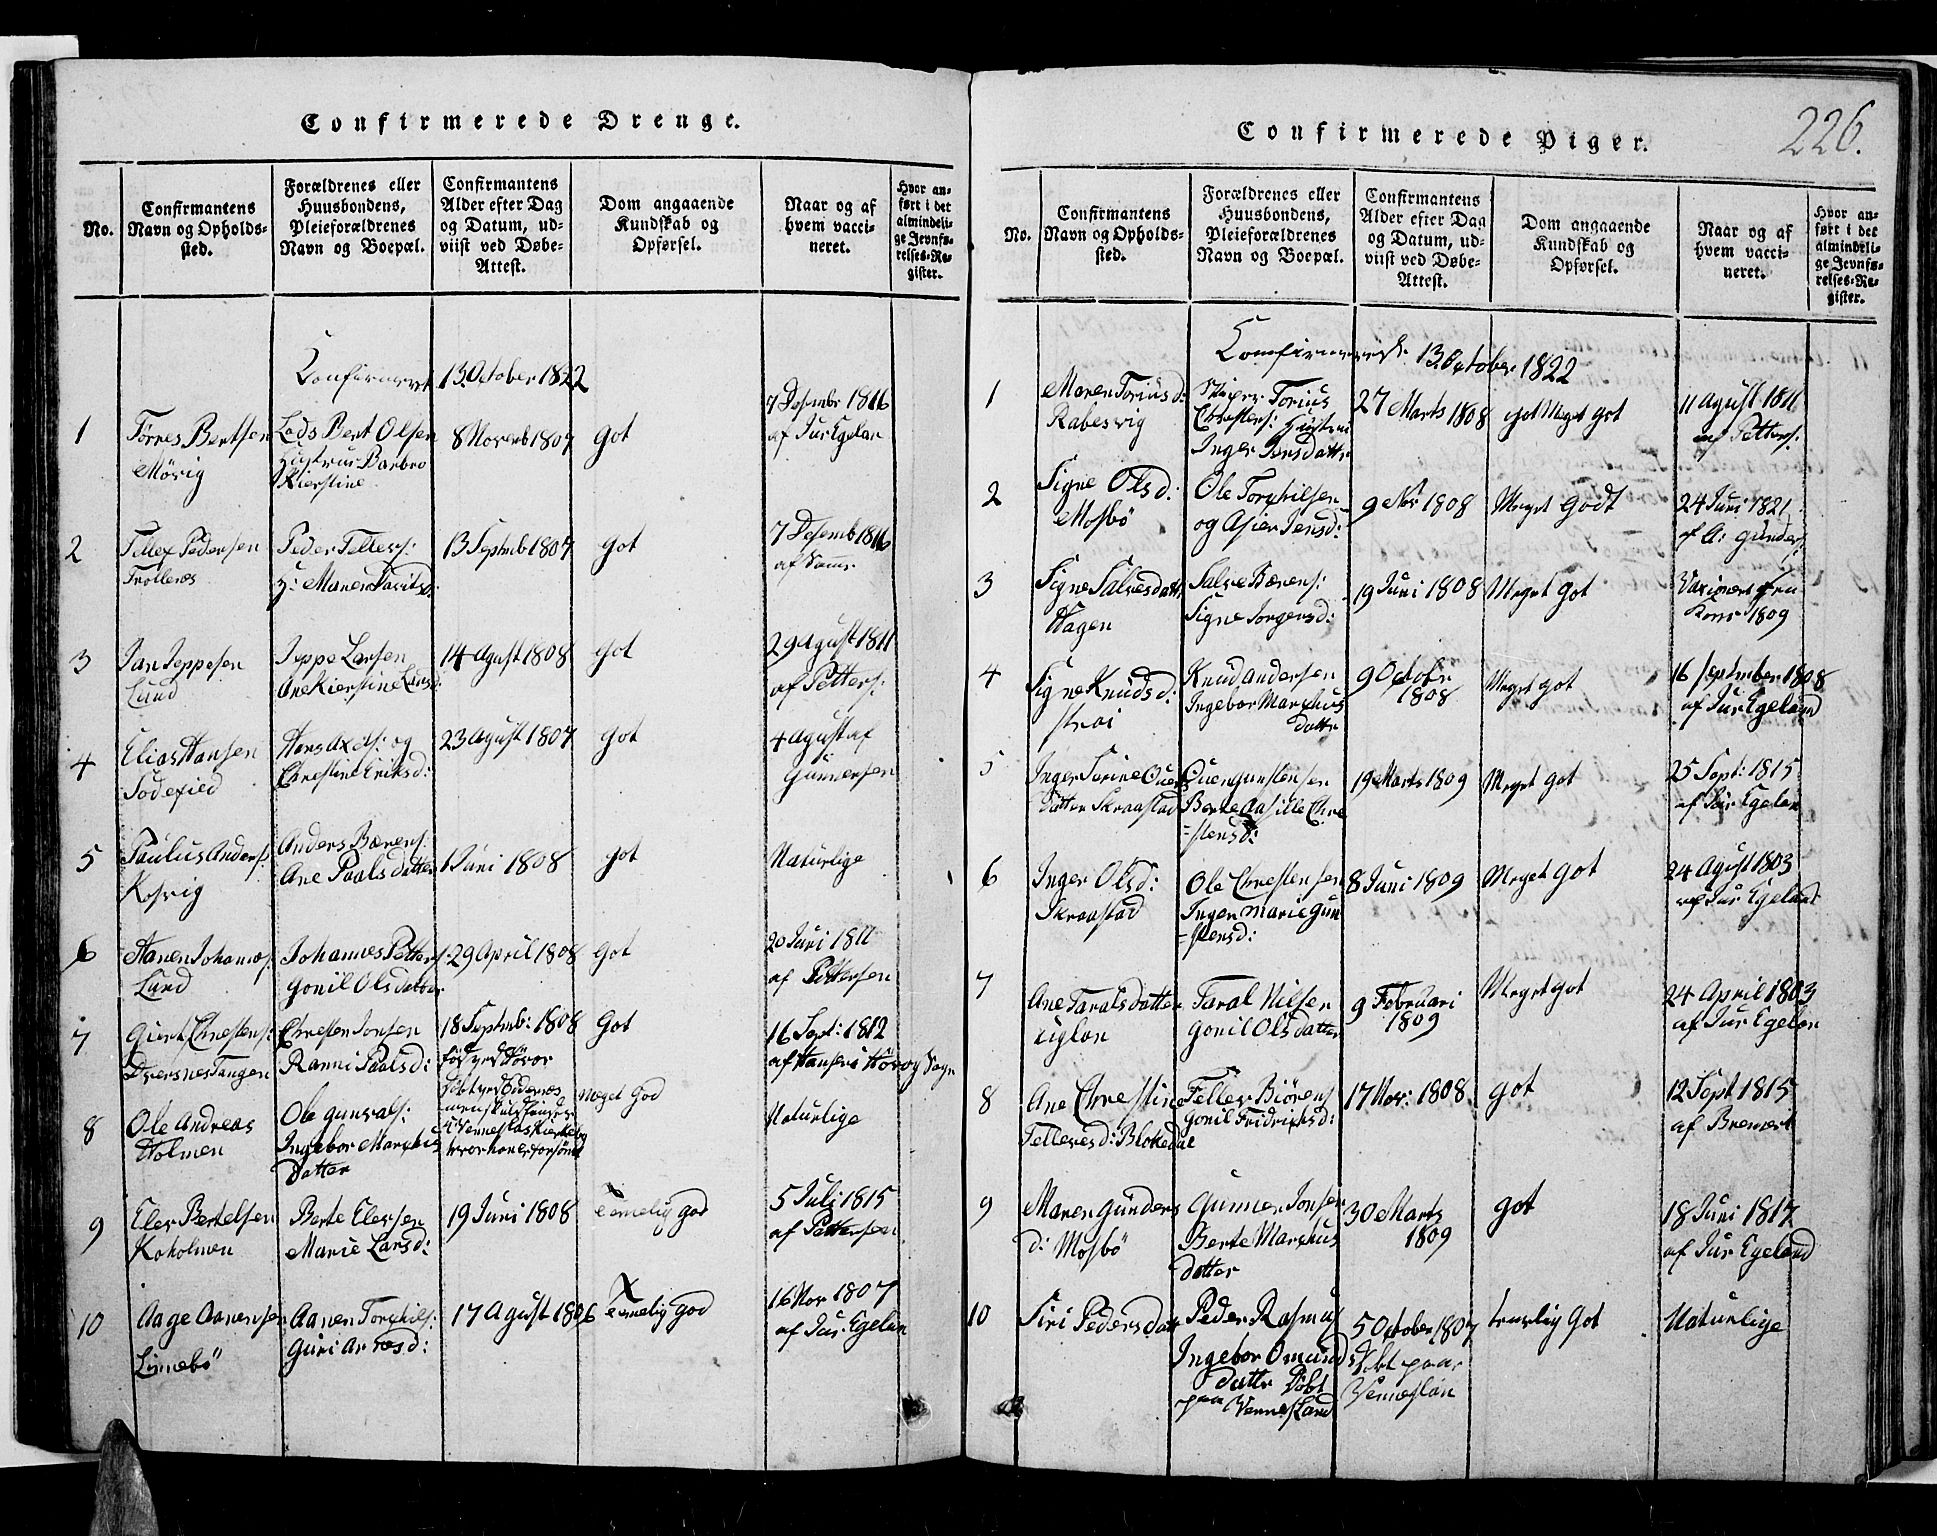 Confirmerede Drenge.
No.
Confirmantens
Navn og Opholds-
sted.
Forældrenes eller
Huusbondens,
Pleieforældrenes
Navn og Boepæl.
Confirmantens
Alder efter Dag
og Datum, ud-
viist ved Døbe-
Attest.
Dom angaaende
Kundskab og
Opførsel.
Naar og af
hvem vacci-
neret.
Hvor an-
ført i det
almindeli-
ge Jevnfø-
relses-Re-
gister.
Confirmert 13. October 1822
1
Tørres Bertsen
Mørig
Lods Bert Olsen
Hustrue Barbro
Kierstine
8 Novemb 1807
Got
7 Desembr 1816
af Jur Egelan
2
Tellef Pedersen
Trollenes
Peder Tellefs:
H: Maren Davitsd:
13 Septmb 1807
Got
7 Desemb 1816
af Samme
3
Jan Jeppesen
Lund
Jeppe Larsen
Ane Kierstine Larsd:
14 Agust 1808
Got
29 Agust 1811
af Petters:
4
Elias Hansen
Hans Axels: og
Chrestine Eriksd:
23 Agust 1807
Got
4 Agust af
Gunnersen
5
Paulus Anders:
Kosvig
Anders Børens:
Ane Paalsdatter
1 Juni 1808
Got
Naturlige
6
Hanen Johannes:
Lund
Johannes Petter
Gonil Olsdatter
29 April 1808
Got
20 Juni 1811
af Pettersen
7
Giert Chrestens:
Dversnes Tangen
Chresten Jonsen
Ranni Paalsd:
18 Septmb: 1808
Got
16 Sept: 1812
af Hansen i Høvog Sogn
8
Ole Andreas
Holmen
Ole Gunvals:
Ingebor Marchus
Datter
Meget God
Naturlige
9
Eler Bertelsen
Koholmen
Berte Elersen
Marie Larsd:
19 Juni 1808
Temelig God
5 Juli 1815
af Pettersen
10
Aage Aanensen
Linnebø
Aanen Torkils:
Guri Arnesd:
17 Agust 1806
Temelig God
16 Nov 1807
af Jur Egelan
226.
Confirmerede Piger.
No.
Confirmantens
Navn og Opholds-
sted.
Forældrenes eller
Huusbondens,
Pleieforældrenes
Navn og Boepæl.
Confirmantens
Alder efter Dag
og Datum, ud-
viist ved Døbe-
Attest.
Dom angaaende
Kundskab og
Opførsel.
Naar og af
hvem vacci-
neret.
Hvor an-
ført i det
almindeli-
ge Jevnfø-
relses-Re-
gister.
13. October 1822
1
Maren Toriusd:
Rabesvig
Skiper Torius
Chrestens: Hustrue
Inger Jensdattr
27 Marts 1808
got Meget got
11 Agust 1811
af Petters:
2
Signe Olsd:
Mosbö
Ole Torkilsen
og Asier Jensd:
9 Nov 1808
Meget Godt
24 Juni 1821
af A: Gunders:
3
Signe Salvesdattr
Hagen
Salve Børens:
Signe Jorgensd:
19 Juni 1808
Meget Got
1809
4
Signe Knudsd:
Strai
Knud Andersen
Ingebor Marchus
Dattr
9 Octobr
1808
Meget Got
16 September 1808
af Jur Egeland
5
Inger Torine Ouens
Datter Skraastad
Ouen Gunstensen
Berte Aasille Chre
=stensd:
19 Marts 1809
Meget Got
25 Sept: 1815
af Jur Egelan
6
Inger Olsd:
Skraastad
Ole Chrestensen
Inger Marie Gun
=stensd:
8 Juni 1809
Meget Got
24 Agust 1803
af Jur Egeland
7
Ane Taralsdatter
Uglan
Taral Nilsen
Gonil Olsdatter
9 Februari
1809
Meget got
24 April 1803
af Jur Egelan
8
Ane Chrestine
Tellefsd: Blokedal
Tellef Biörens
Gonil Fridrichsd:
17 Nov: 1808
Got
12 Sept 1815
af Bremert
9
Maren Gunders
d: Mosbö
Gunner Jonsen
Berte Marchus
Datter
30 Marts
1809
Got
18 Juni 1817
af Jur Egeland
10
Siri Pedersdatt
Peder Rasmus
Ingebor Omunds
Dattr Döbt
paa Venneslan
5 October 1807
Döbt paa
Venneslan
temelig Got
Naturlige